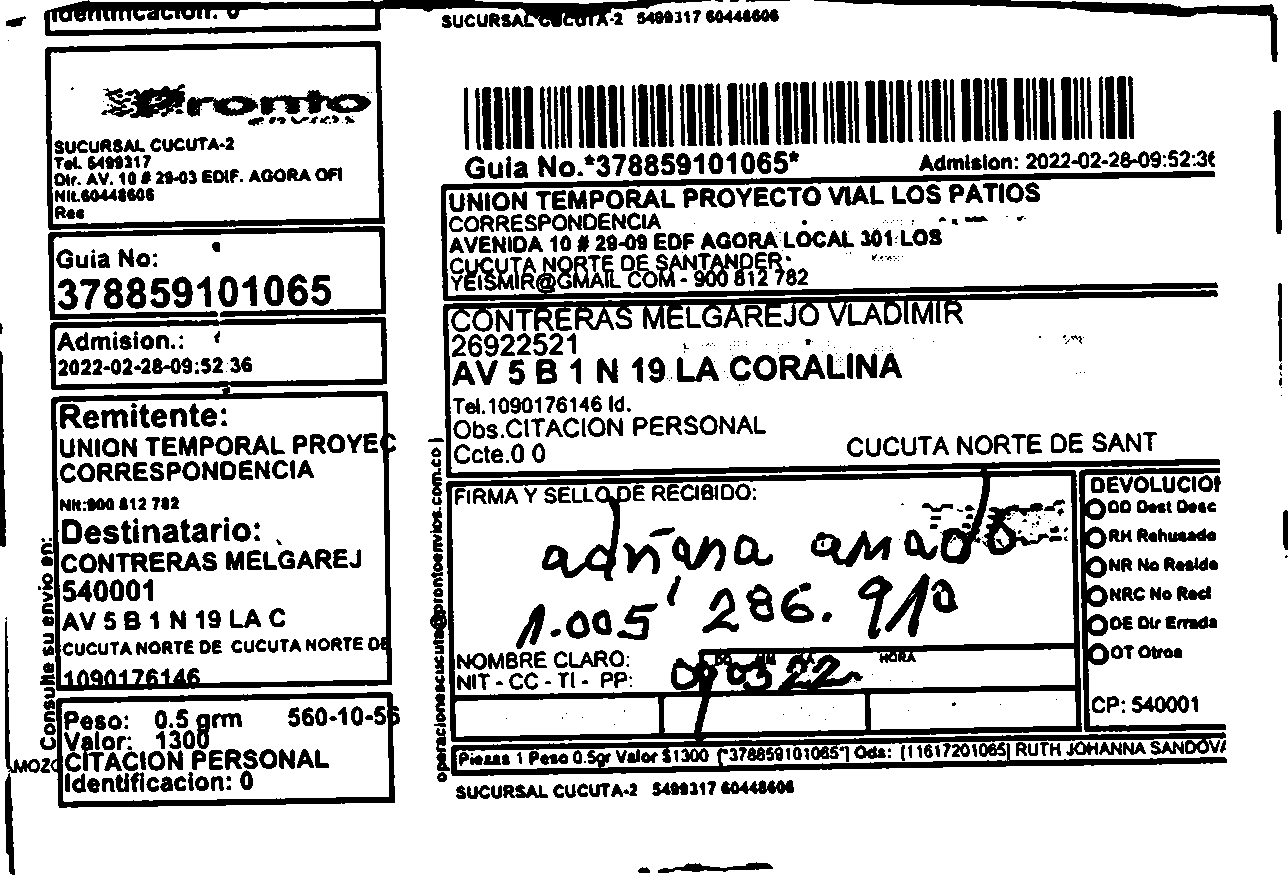 Identificacion: 0
SUCURSAL CUCUTA-2 5499317 60448606
Pronto
envios
SUCURSAL CUCUTA-2
Tel. 5499317
Dir. AV. 10 # 29-03 EDIF. AGORA OFI
Nit.60448606
Res
Guia No:
378859101065
Admision.:
2022-02-28-09:52:36
Remitente:
UNION TEMPORAL PROYEC
CORRESPONDENCIA
Nit:900 812 782
Destinatario:
CONTRERAS MELGAREJ
540001
AV 5 B 1 N 19 LA C
CUCUTA NORTE DE CUCUTA NORTE DE
1090176146
Peso: 0.5 grm 560-10-56
Valor: 1300
CITACION PERSONAL
Identificacion: 0
Consulte su envio en:
MOZO
operacionescucuta@prontoenvios.com.co |
Guia No.*378859101065*
Admision: 2022-02-28-09:52:36
UNION TEMPORAL PROYECTO VIAL LOS PATIOS
CORRESPONDENCIA
AVENIDA 10 # 29-09 EDF AGORA LOCAL 301 LOS
CUCUTA NORTE DE SANTANDER
YEISMIR@GMAIL COM - 900 812 782
CONTRERAS MELGAREJO VLADIMIR
26922521
AV 5 B 1 N 19 LA CORALINA
Tel.1090176146 Id.
Obs.CITACION PERSONAL
Ccte.0 0
CUCUTA NORTE DE SANT
FIRMA Y SELLO DE RECIBIDO:
adriana amado
1.005 286.910
NOMBRE CLARO:
NIT - CC - TI - PP:
DD MM AA HORA
090322
DEVOLUCION
DD Dest Desc
RH Rehusado
NR No Reside
NRC No Recl
DE Dir Errada
OT Otros
CP: 540001
Piezas 1 Peso 0.5gr Valor $1300 [*378859101065*] Ods: [11617201065] RUTH JOHANNA SANDOVA
SUCURSAL CUCUTA-2 5499317 60448606